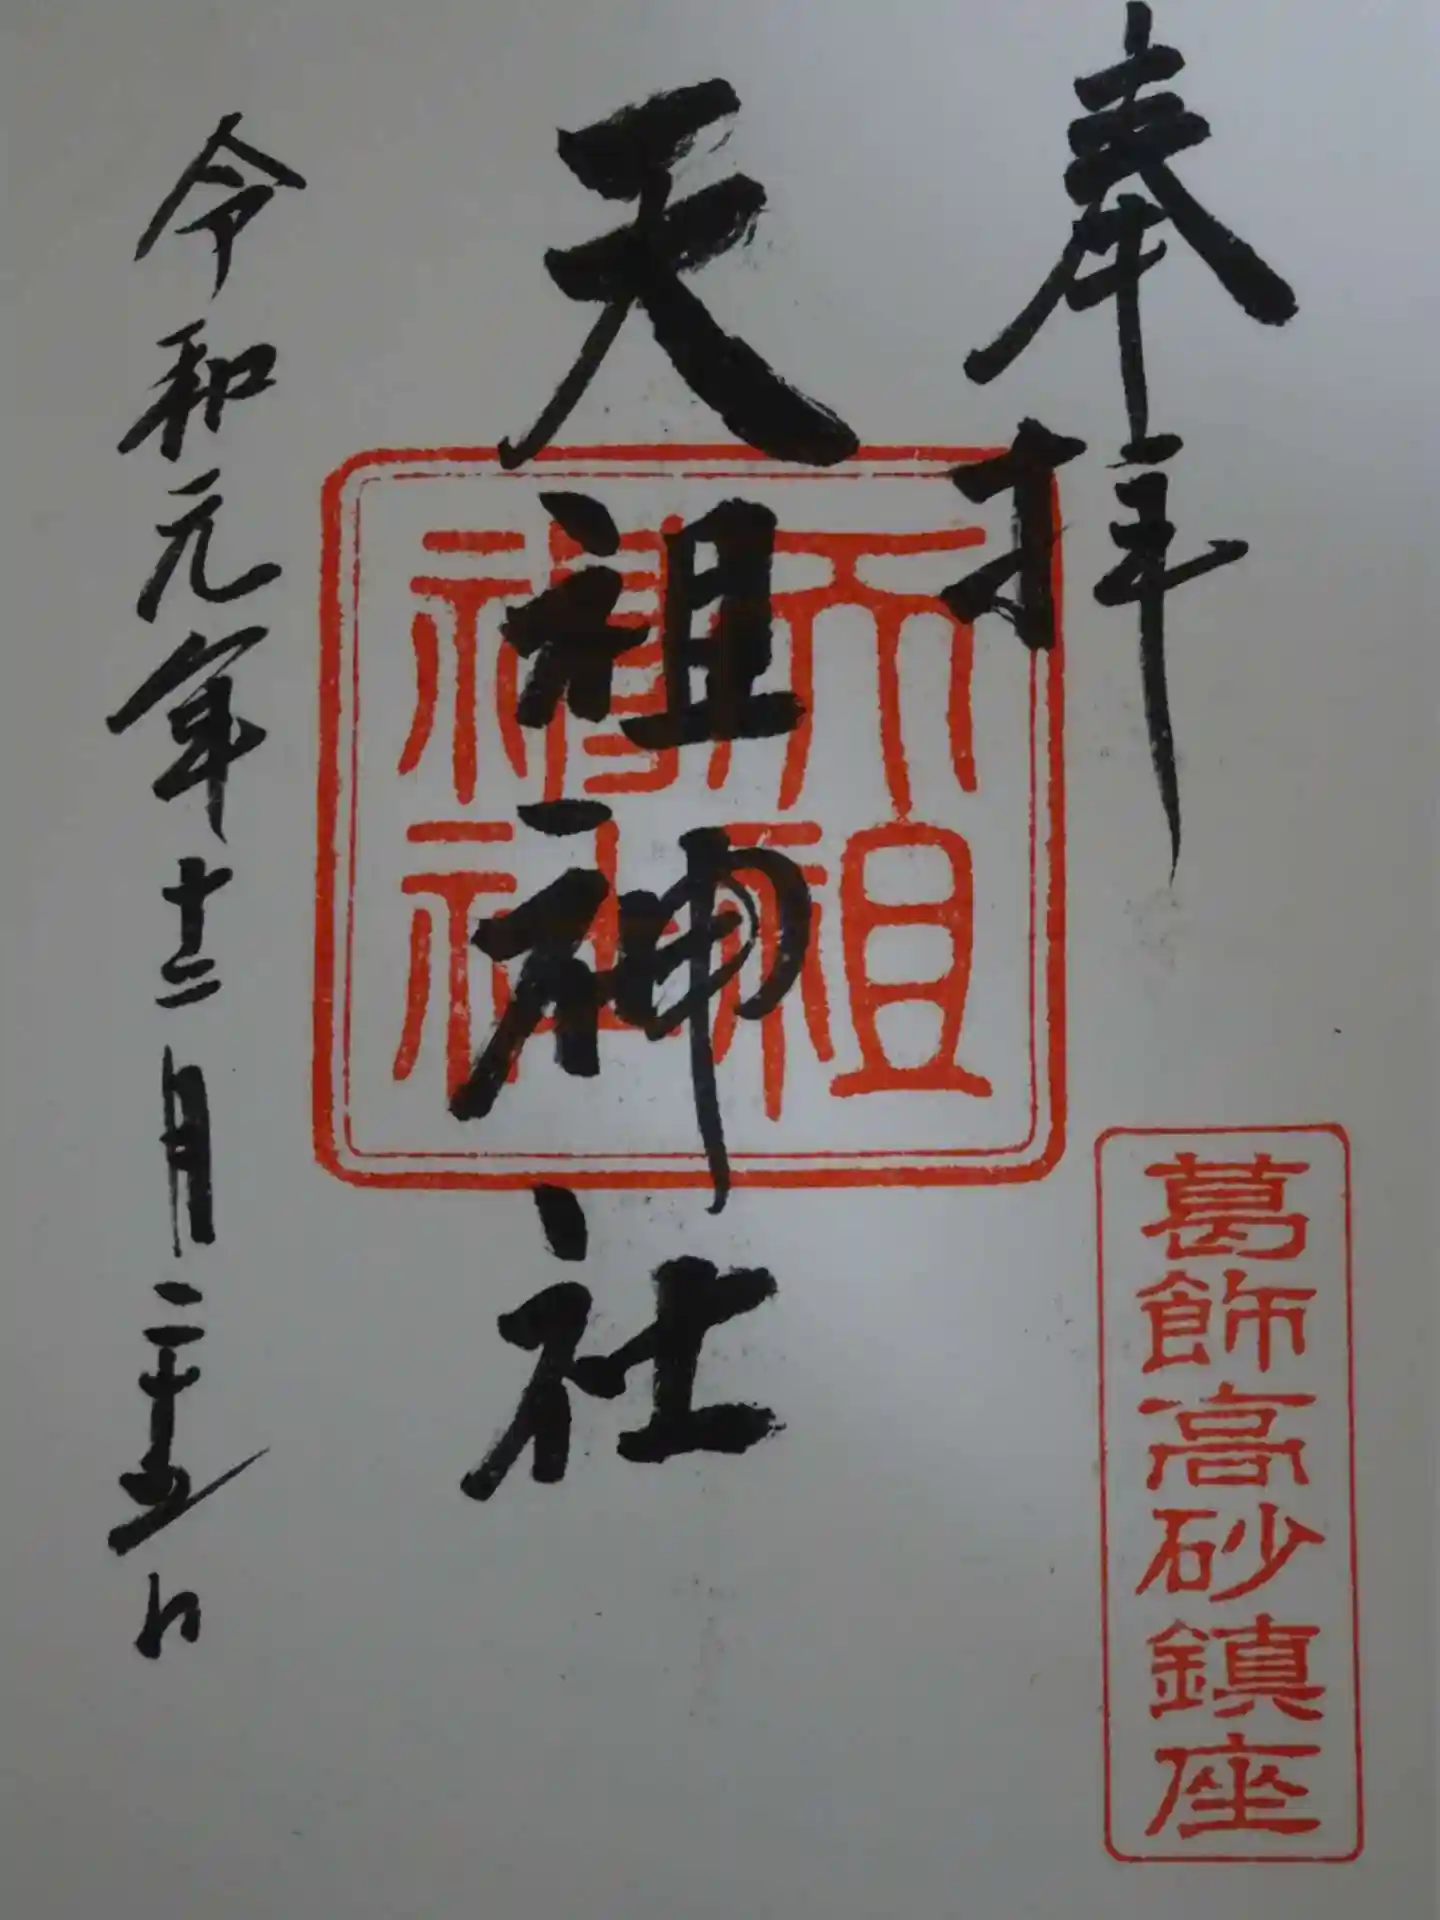 奉拝
葛飾高砂鎮座
天祖神社
天祖
神社
令和元年十二月二十五日